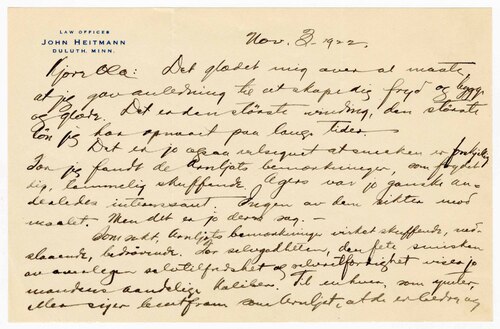 LAW OFFICES
JOHN HEITMANN
DULUTH, MINN.
Nov. 3. 1922.
Kjære Ola: Det glædet mig over al maate
at jeg gav anledning til at skape dig fryd og hygge
og glæde. Det er den største vinding, den største
løn jeg har opnaaet paa lange tider.
Det er jo ogsaa velsignet at smaken er forskjellig
for jeg fandt de Arnljots bemerkninger, som
skuffende. Agers var jo ganske an-
deledes interessant. Ingen av dem sikter mod
maalet. Men det er jo deres sag. —
Som sagt, Arnljots bemerkninger virket skuffende, ned-
slaaende, bedrøvende. For selvgodheten, den fete smisken
av selvtilfredshet og selvretfærdighet viser jo
mandens aandelige kaliber. Til enhver, som
eller siger imot fra som Arnljot, at de er